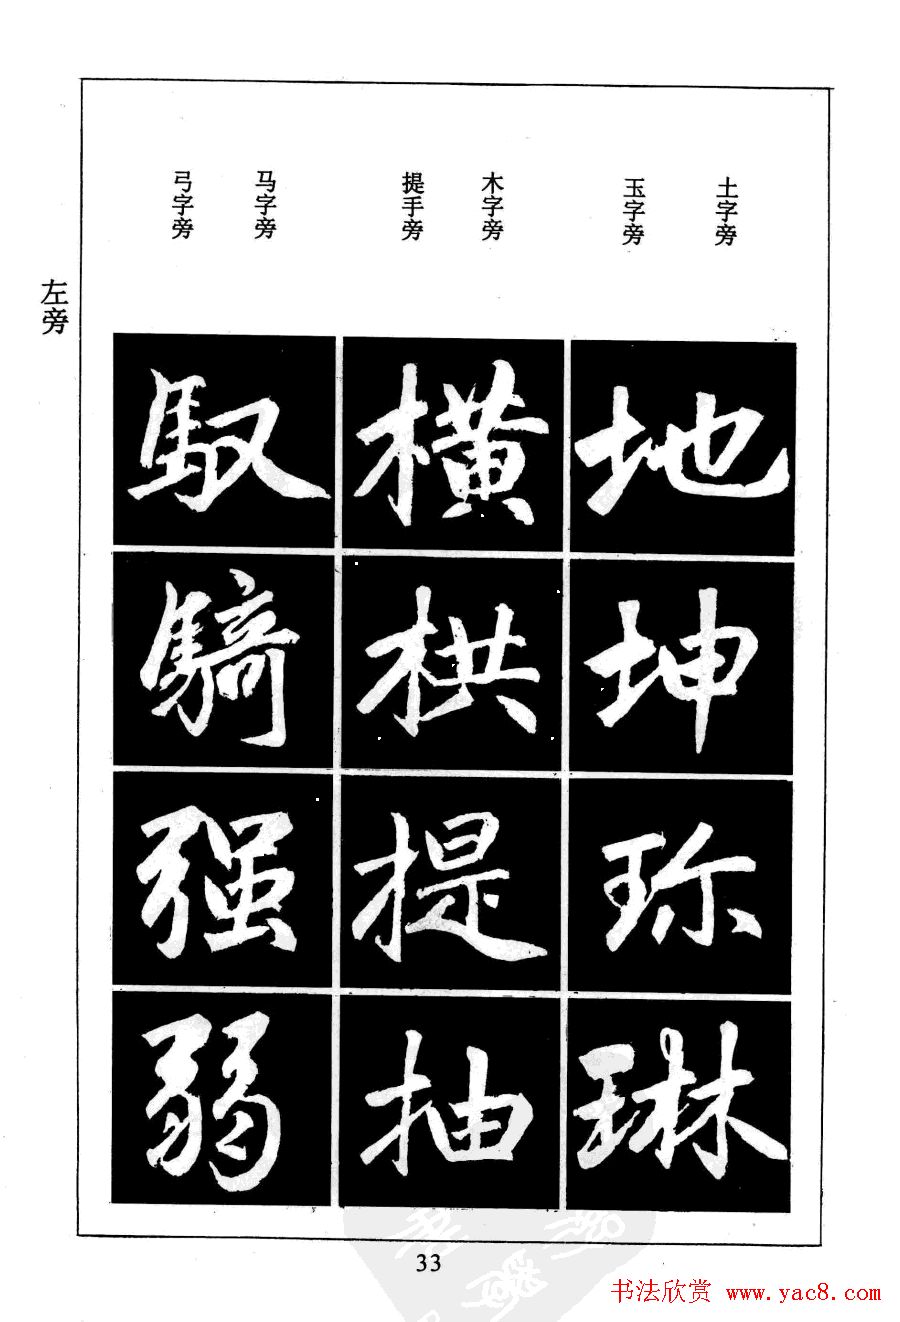 左旁
土字旁
玉字旁
木字旁
提手旁
马字旁
弓字旁
地
坤
珎
琳
横
栱
提
抽
馭
騎
强
弱
33
书法欣赏 www.yac8.com